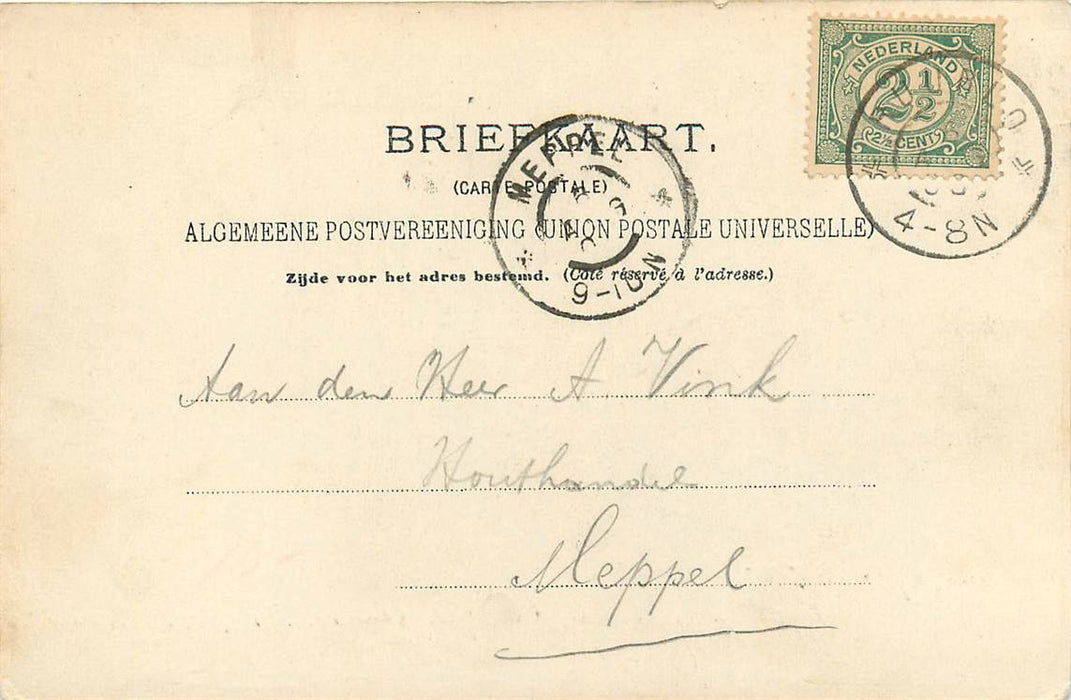 NEDERLAND
2½
2½ CENT
4-8N
BRIEFKAART.
(CARTE POSTALE)
ALGEMEENE POSTVEREENIGING (UNION POSTALE UNIVERSELLE)
Zijde voor het adres bestemd. (Côté réservé à l'adresse.)
MEPPEL
9-10N
Aan den Heer A. Vink
Houthandel
Meppel